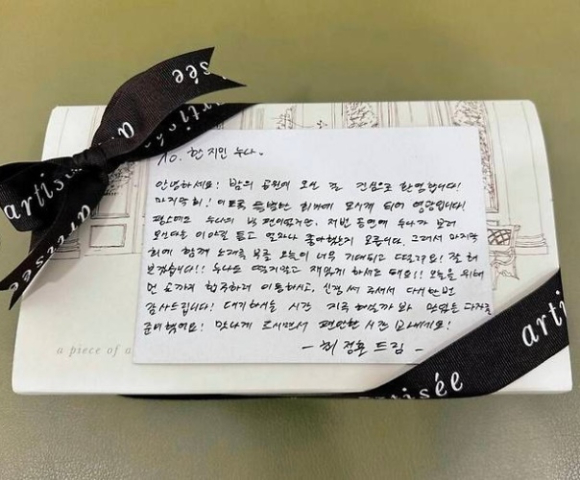 artisée
To. 한지민 누나.
안녕하세요! 밤의 공원에 오신 걸 진심으로 환영합니다!
마지막회! 이토록 특별한 회차에 모시게 되어 영광입니다!
평소에도 누나의 빅 팬이었지만, 저번 공연에 누나가 보러
오신다는 이야길 듣고 얼마나 좋아했는지 모릅니다. 그래서 마지막
회에 함께 노래를 부를 오늘이 너무 기대되고 떨려요! 잘 해
보겠습니다!! 누나도 떨지말고 재밌게 하셔도 돼요!! 오늘을 위해
먼 손까지 합주하러 이동하시고, 신경 써 주셔서 다시 한번
감사드립니다! 대기하시는 시간 지루하실까 봐 맛있는 다과를
준비했어요! 맛나게 드시면서 편안한 시간 보내세요!
- 최정훈 드림 -
a piece of a
artisée